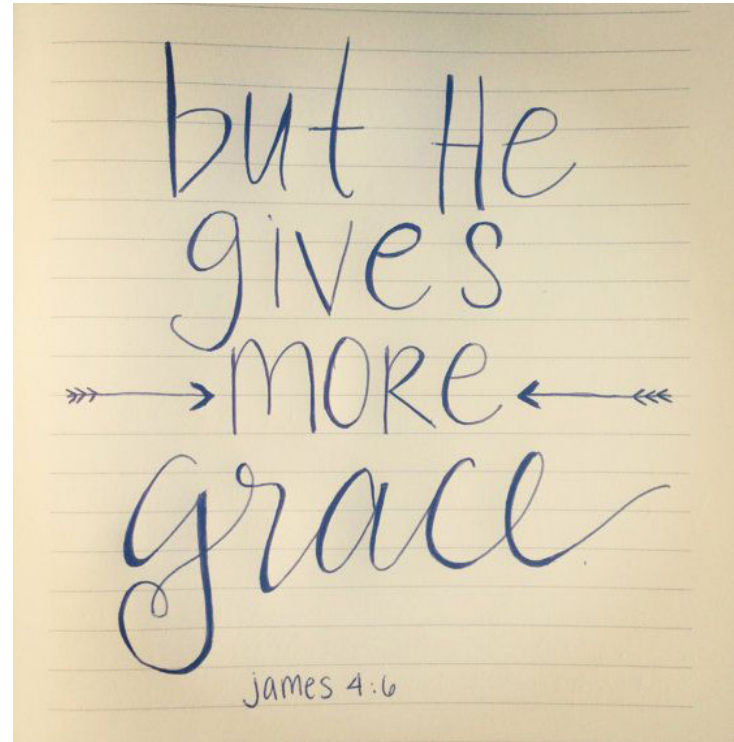 but He
gives
more
grace
james 4:6